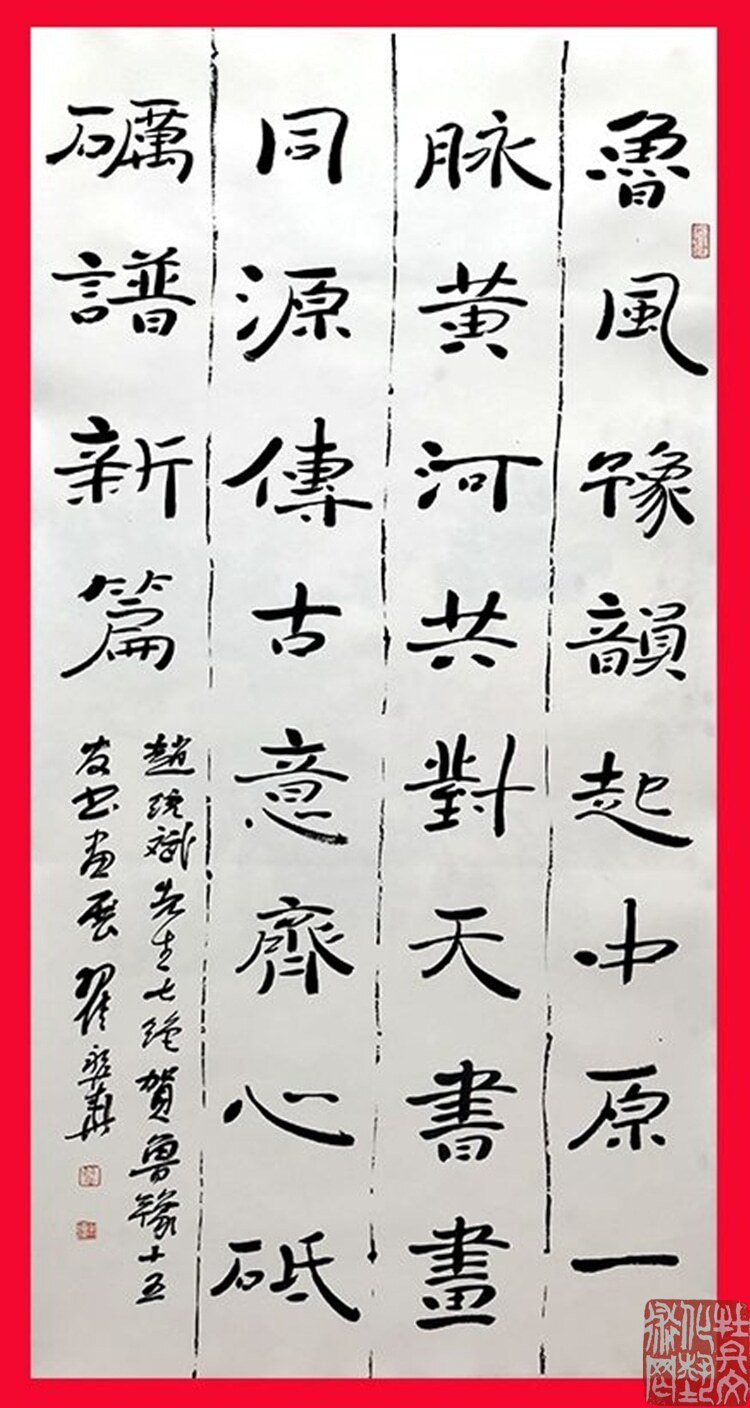 魯風豫韻起中原一
脉黄河共對天書畫
同源傳古意齊心砥
礪譜新篇
趙斌先生七絕賀魯豫十五
友書畫展 翟